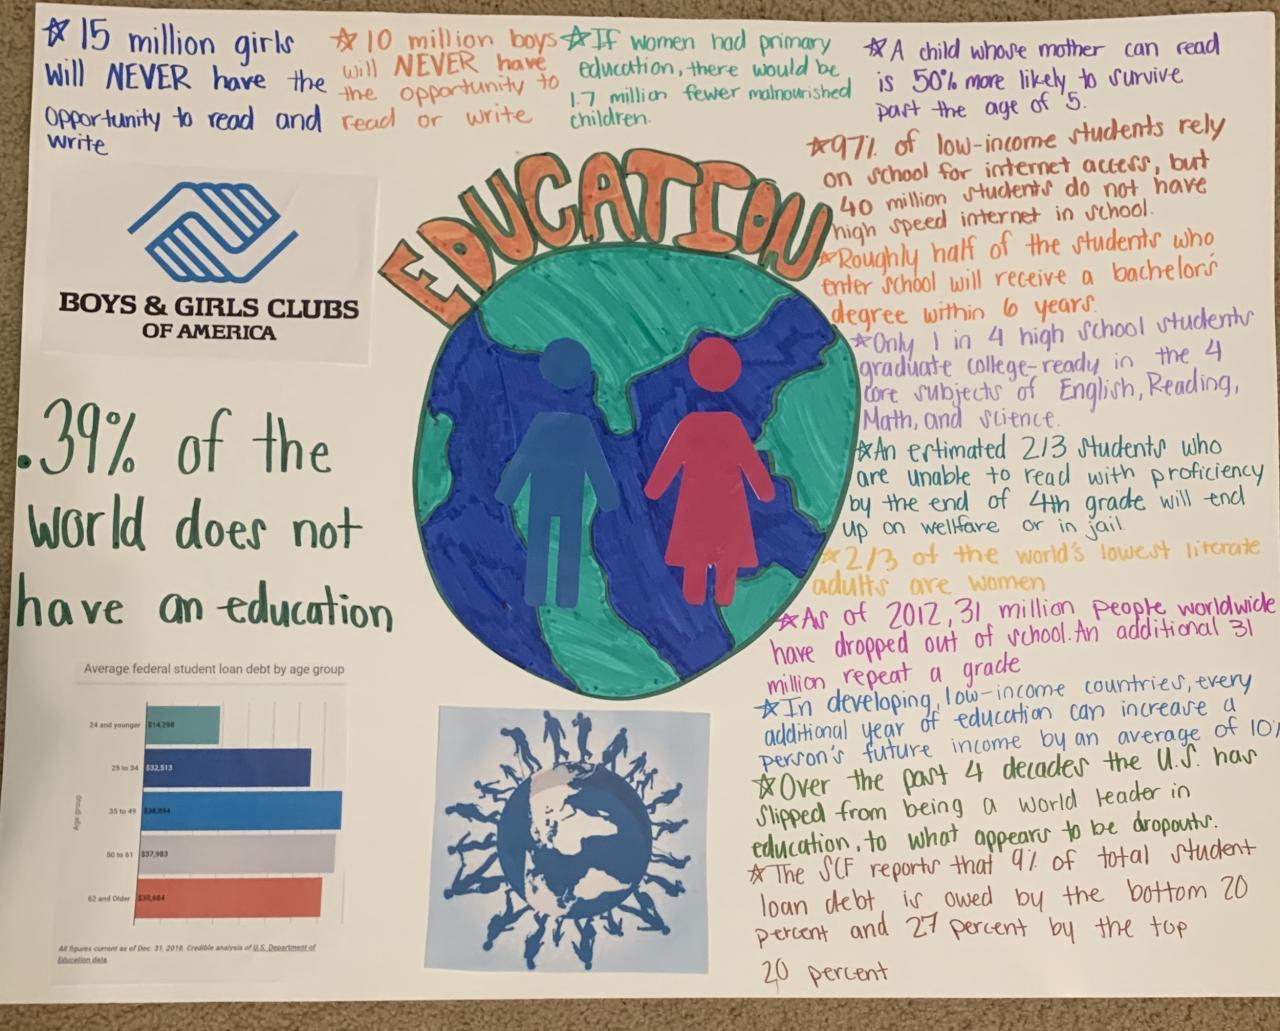 ☆ 15 million girls
will NEVER have the
opportunity to read and
write
☆ 10 million boys
will NEVER have
the opportunity to
read or write
☆ If women had primary
education, there would be
1.7 million fewer malnourished
children.
☆ A child whose mother can read
is 50% more likely to survive
past the age of 5.
EDUCATION
☆ 97% of low-income students rely
on school for internet access, but
40 million students do not have
high speed internet in school.
☆ Roughly half of the students who
enter school will receive a bachelor's
degree within 6 years.
☆ Only 1 in 4 high school students
graduate college-ready in the 4
core subjects of English, Reading,
Math, and science.
☆ An estimated 2/3 students who
are unable to read with proficiency
by the end of 4th grade will end
up on welfare or in jail.
☆ 2/3 of the world's lowest literate
adults are women
☆ As of 2012, 31 million people worldwide
have dropped out of school. An additional 31
million repeat a grade
☆ In developing, low-income countries, every
additional year of education can increase a
person's future income by an average of 10%
☆ Over the past 4 decades the U.S. has
slipped from being a world leader in
education, to what appears to be dropouts.
☆ The SCF reports that 9% of total student
loan debt is owed by the bottom 20
percent and 27 percent by the top
20 percent
BOYS & GIRLS CLUBS
OF AMERICA
.39% of the
world does not
have an education
Average federal student loan debt by age group
Age group
24 and younger $14,298
25 to 34 $32,513
35 to 49
50 to 61 $37,983
62 and Older
All figures current as of Dec. 31, 2018. Credible analysis of U.S. Department of
Education data.